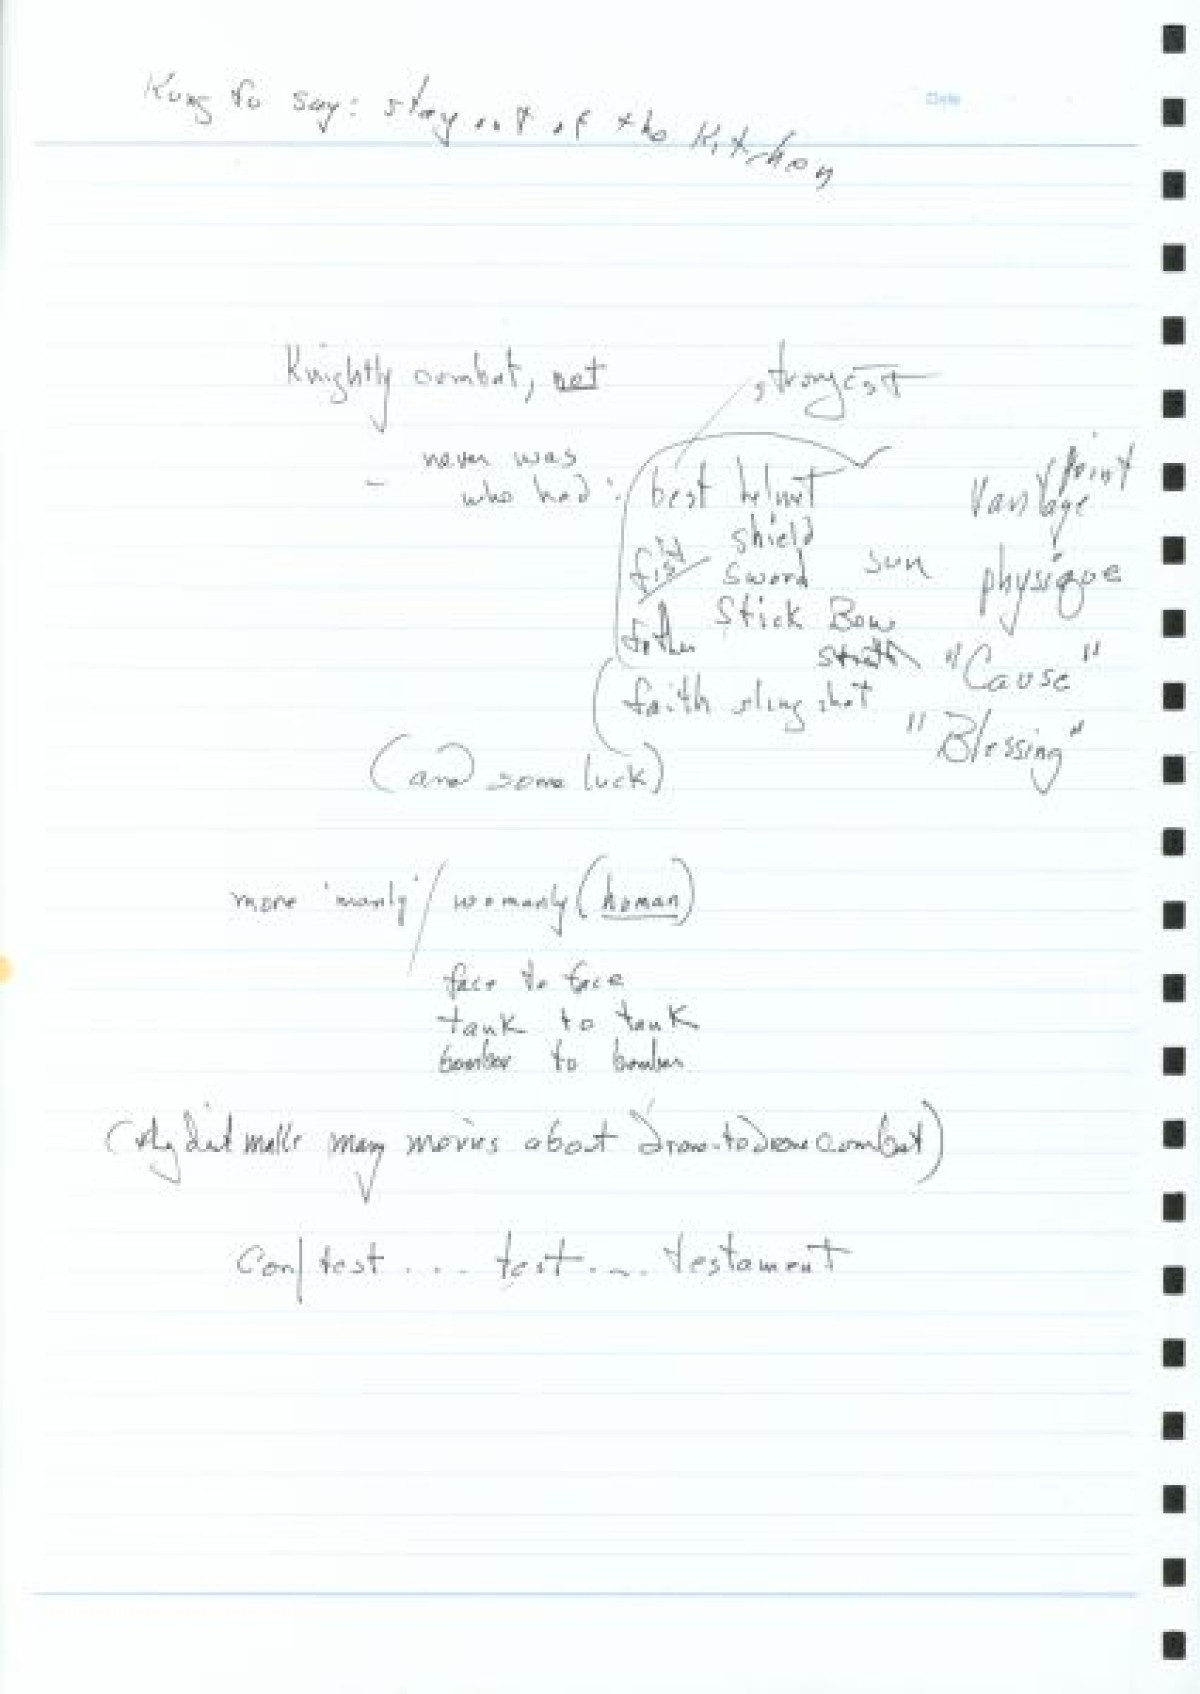 Date
Kung fu say: stay out of the Kitchen
Knightly combat, not
strongest
never was
- who had : best helmet
shield
fist sword
Stick Bow
sun
Vantage point
physique
"Cause"
faith sling shot
"Blessing"
(and some luck)
more 'manly' / womanly (human)
face to face
tank to tank
bomber to bomber
many movies about drone to drone combat)
Con/test .... test .... testament